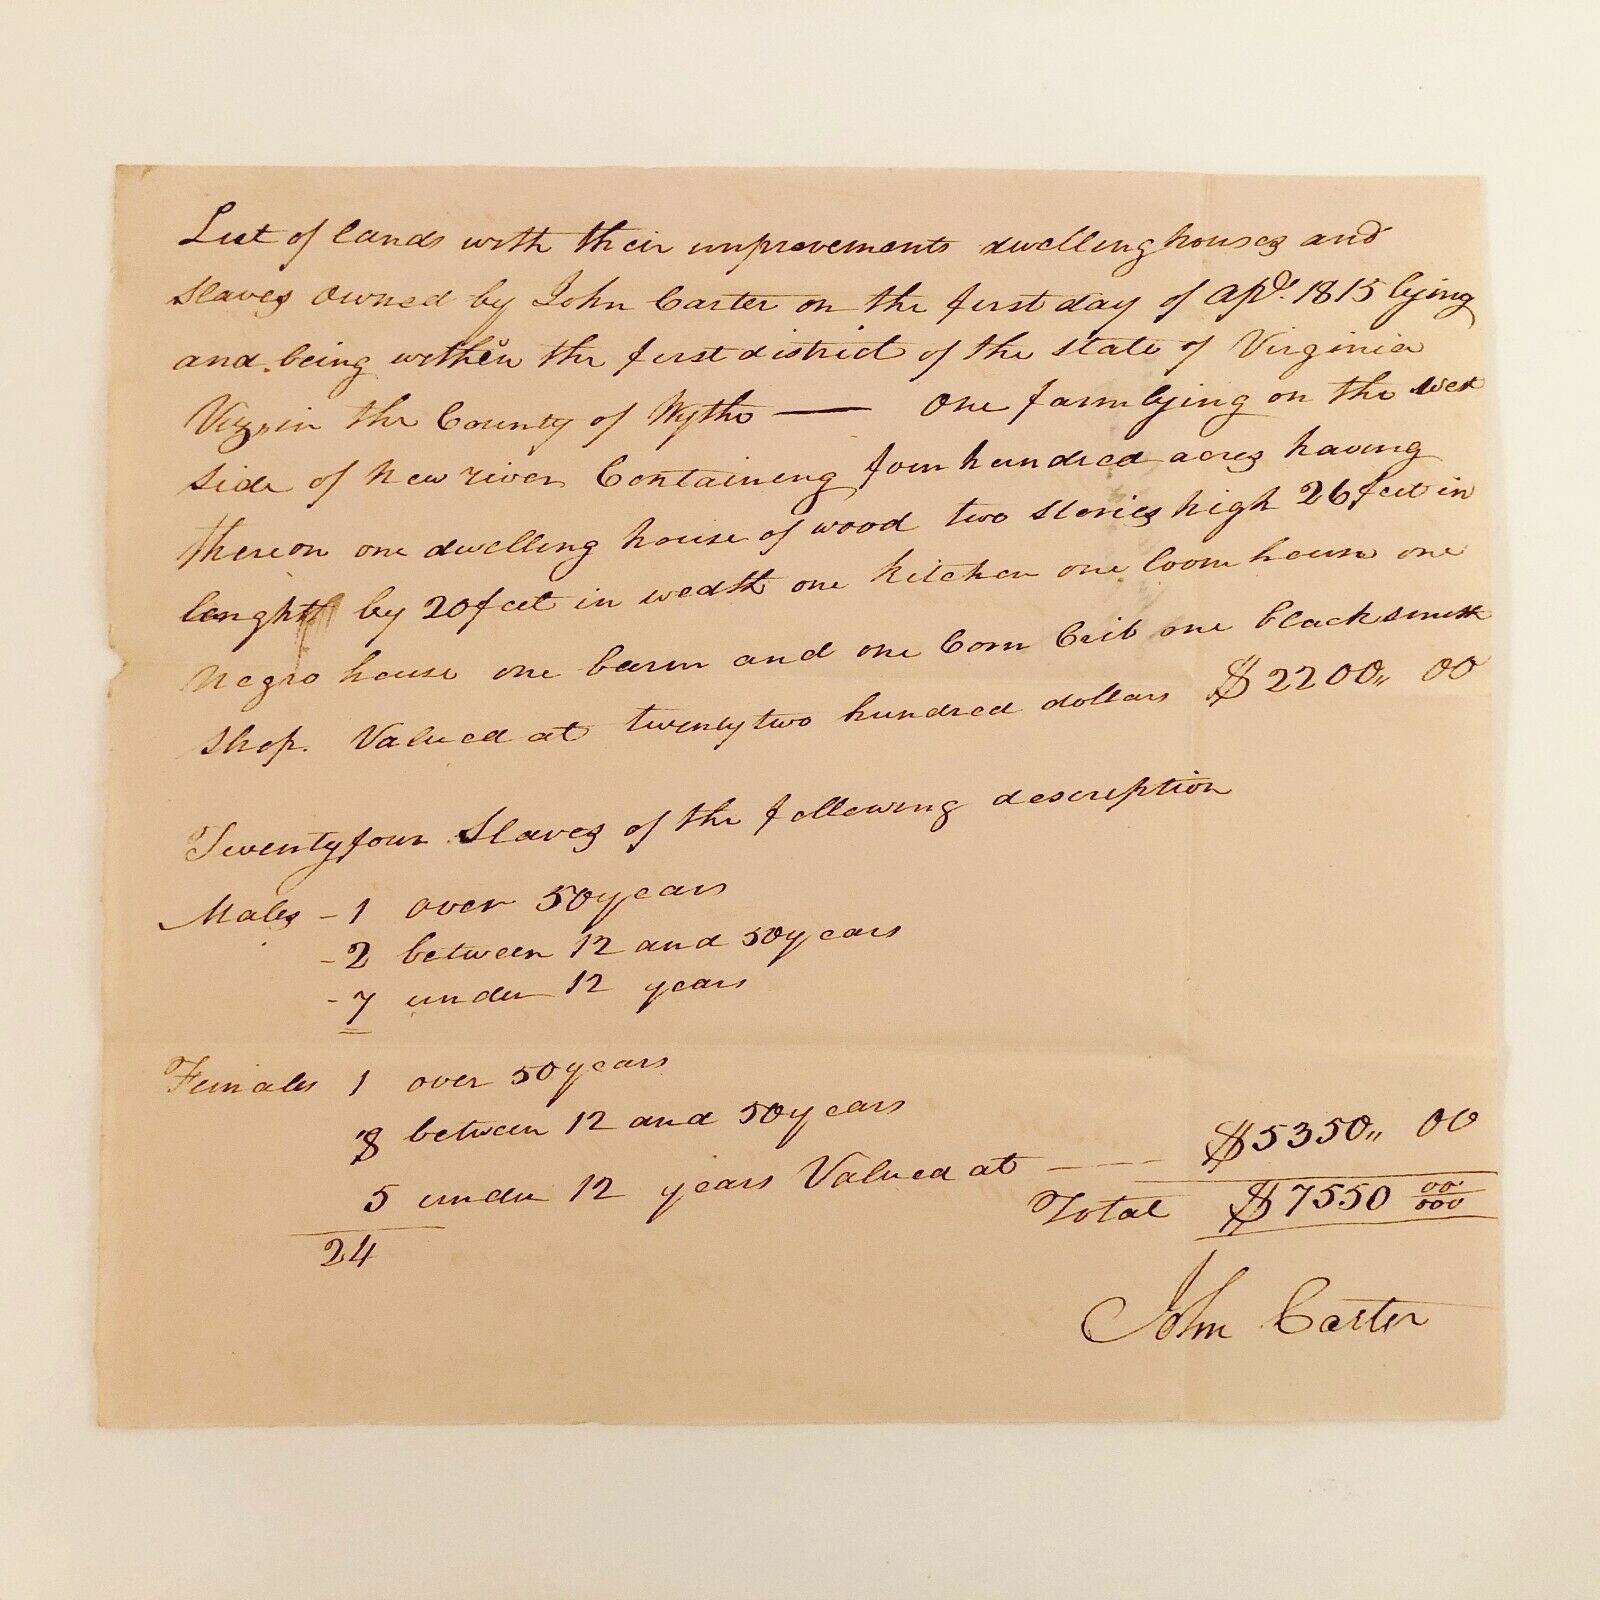 List of lands with their improvements dwelling houses and
slaves owned by John Carter on the first day of apl. 1815 lying
and being within the first district of the state of Virginia
Viz, in the County of Wythe — One farm lying on the west
side of New river Containing four hundred acres having
thereon one dwelling house of wood two stories high 26 feet in
lenght by 20 feet in wedth one kitchen one loom house one
Negro house one barn and one Corn Crib one blacksmith
shop. Valued at twenty two hundred dollars $2200,, 00
Twenty four Slaves of the following description
Males - 1 over 50 years
- 2 between 12 and 50 years
- 7 under 12 years
Females 1 over 50 years
8 between 12 and 50 years
5 under 12 years Valued at — — — $5350,, 00
24
Total $7550 00/000
John Carter